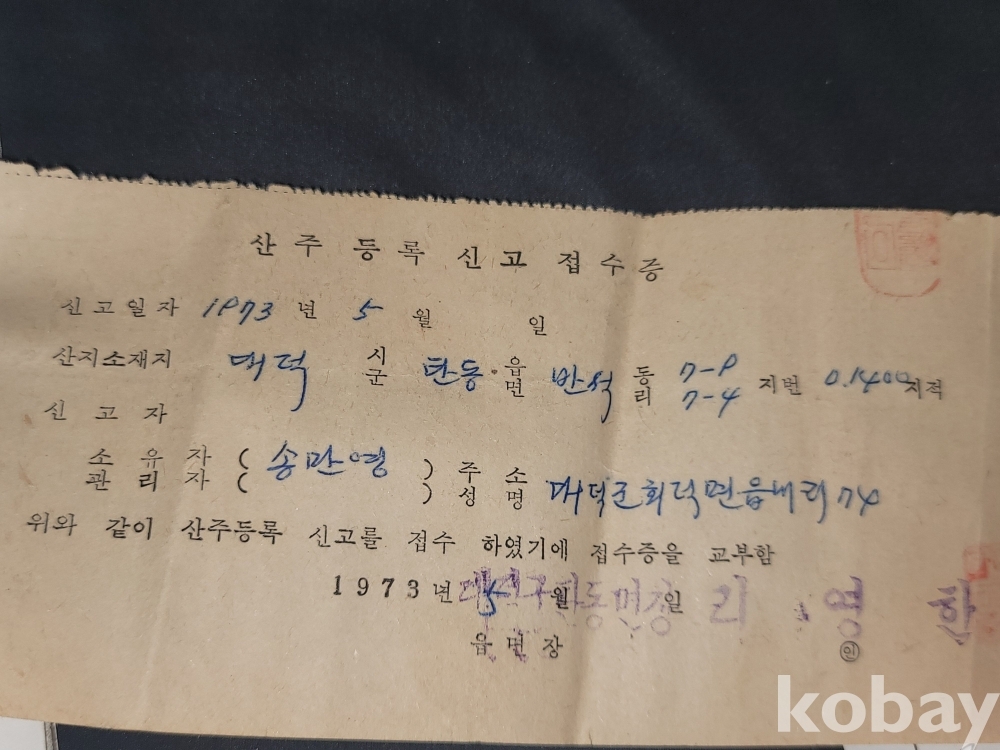 산주 등록 신고 접수증
신고일자 1973 년 5 월 일
산지소재지 대덕 시군 탄동 읍면 반석 동리 7-9 7-4 지번 0.1400 지적
신고자
소유자 ( 송만영 ) 주소
관리자 ( ) 성명 대덕군회덕면읍내리 74
위와 같이 산주등록 신고를 접수 하였기에 접수증을 교부함
1973년 5 월 일 대덕군탄동면장 리 영 한
읍면장 인
kobay